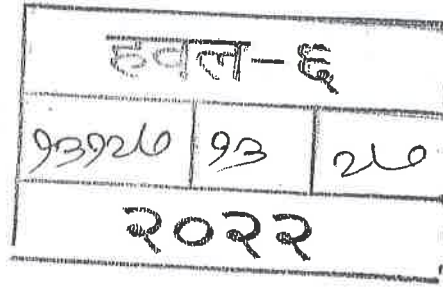 हवल-६
१३१२७ १३ २७
२०२२